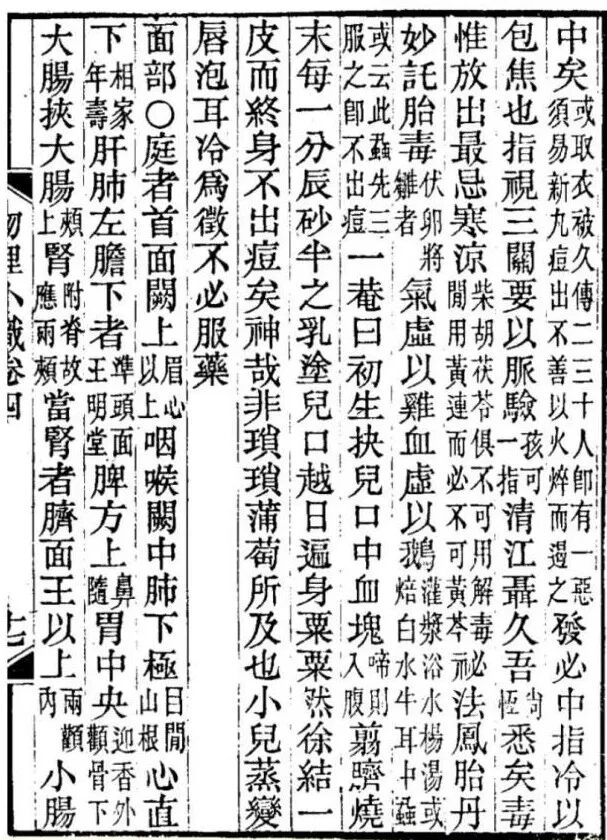 中矣或取衣被久傳二三十人卽有一惡須易新九痘出不善以火焠而遏之發必中指冷以
包焦也指視三關要以脈驗孩可一指清江聶久吾尙恆悉矣毒
惟放出最忌寒涼柴胡茯苓俱不可用解毒必閒用黃連而必不可黃芩祕法鳳胎丹
妙託胎毒伏卵將雛者氣虛以雞血虛以鵝灌漿浴水楊湯或焙白水牛耳中蝨
或云此蝨先三服之卽不出痘一菴曰初生抉兒口中血塊啼則入腹翦臍燒
末每一分辰砂半之乳塗兒口越日遍身粟粟然徐結一
皮而終身不出痘矣神哉非瑣瑣蒲萄所及也小兒蒸變
唇泡耳冷爲徵不必服藥
面部〇庭者首面闕上眉心以上咽喉闕中肺下極目閒山根心直
下相家年壽肝肺左膽下者準頭面王明堂脾方上鼻隨胃中央迎香外顴骨下
大腸挾大腸頰上腎附脊故應兩頰當腎者臍面王以上兩顴內小腸
物理小識卷四
十七